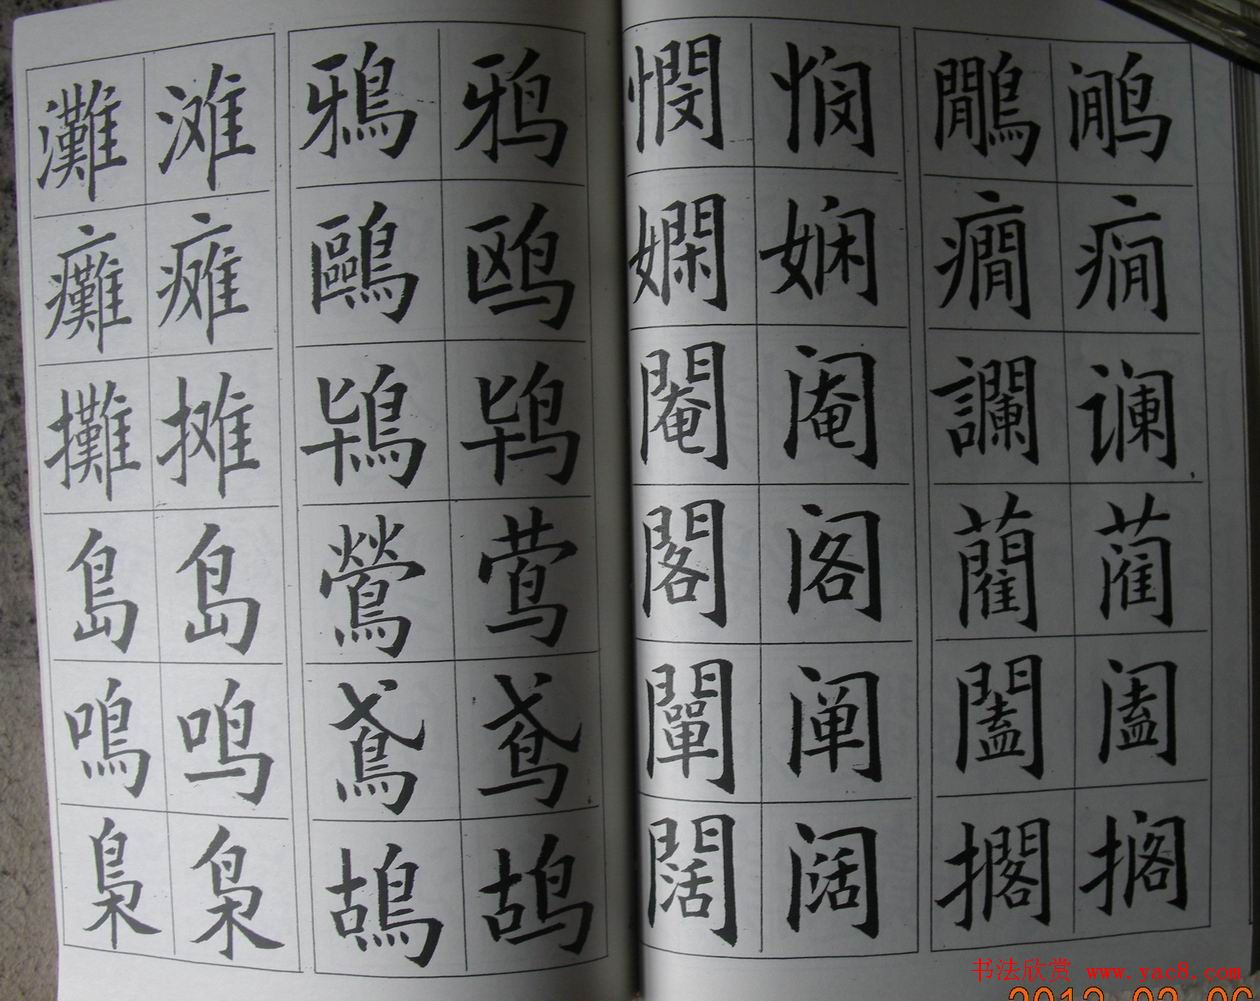 灘 滩 鴉 鸦
癱 瘫 鷗 鸥
攤 摊 鴇 鸨
島 岛 鶯 莺
鳴 鸣 鳶 鸢
梟 枭 鴣 鸪
憫 悯 鷳 鹇
嫻 娴 癇 痫
閹 阉 讕 谰
閣 阁 藺 蔺
闡 阐 闔 阖
闊 阔 擱 搁
书法欣赏 www.yac8.com